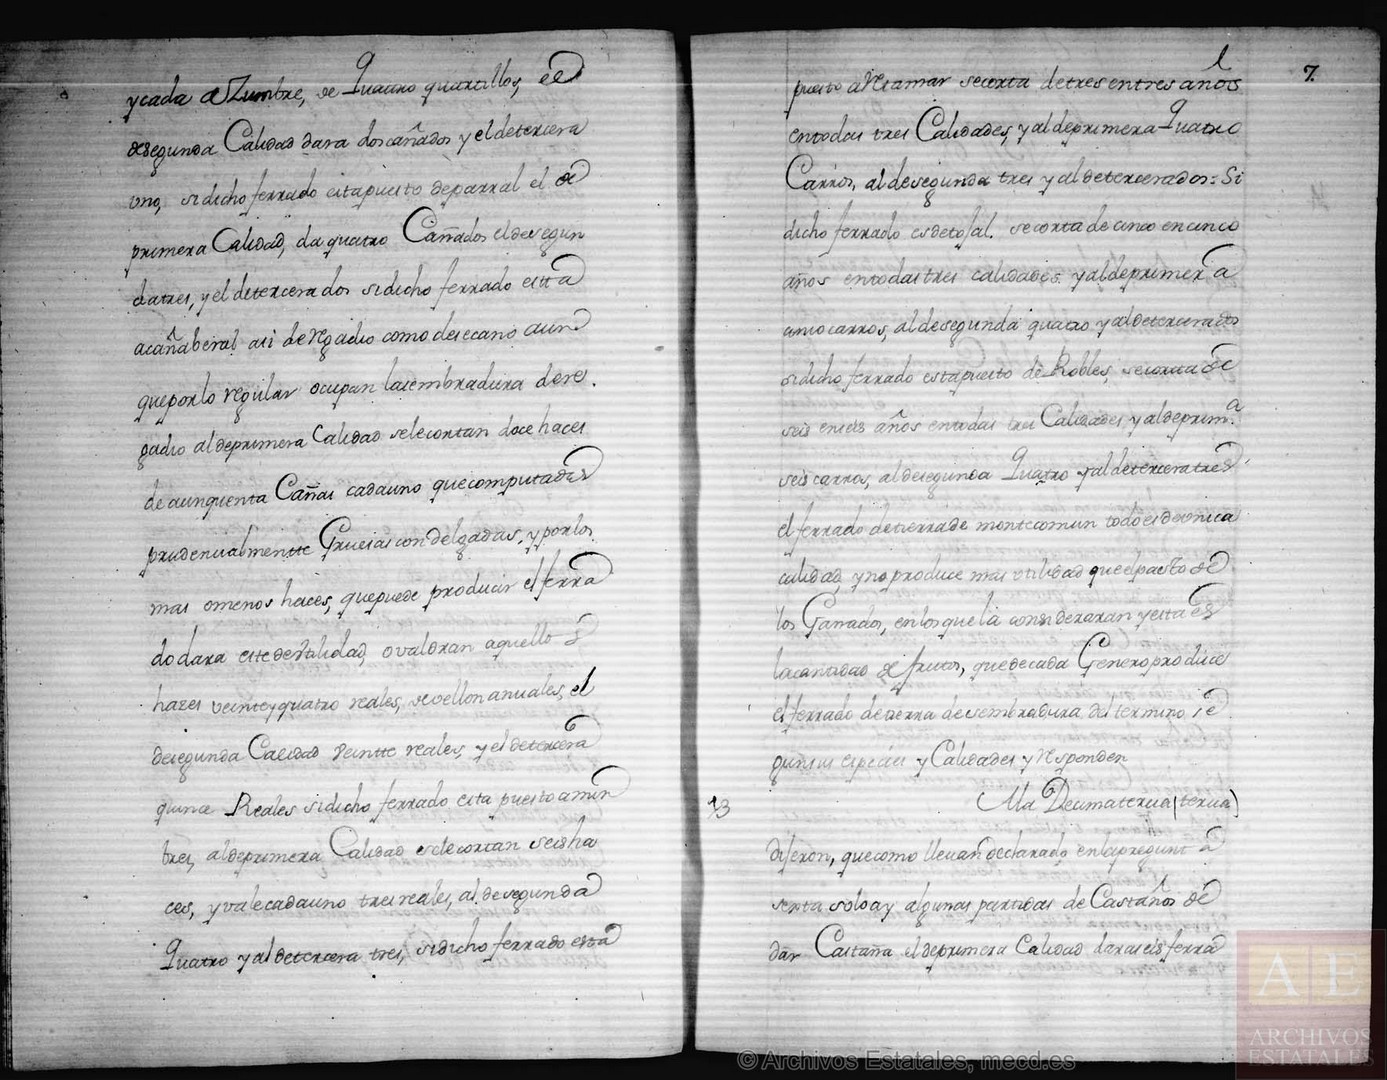 ycada Zumbre, de Quatro quartillos, el
desegunda Calidad dara dos cañados y el detercera
uno, sidicho ferrado esta puesto deparral el de
primera Calidad, da quatro Cañados el desegun
datres, y el detercera dos sidicho ferrado estta
acañaberal asi de Regadio como desecano aun
queporlo regular ocupan lasembradura dere.
gadio aldeprimera Calidad selecortan doce haces
de cinquenta Cañas cadauno que computadas
prudencialmentte Gruesas con delgadas, y por los
mas omenos haces, quepuede producir el ferra
do dara este deutilidad, o valdran aquellos
hazes veinteyquatro reales, devellon anuales, el
desegunda Calidad veintte reales, y el detercera
quince Reales sidicho ferrado esta puesto amin
tres, aldeprimera Calidad selecortan seis ha
ces, y vale cadauno tres reales, al desegunda
Quatro y al detercera tres, sidicho ferrado esta
7.
puesto aRetamar secorta detres entres años
entodas tres Calidades, y al deprimera Quatro
Carros, al desegunda tres y al detercera dos: Si
dicho ferrado es detojal. secorta de cinco en cinco
años entodas tres calidades y al deprimera
cinco carros, al desegunda quatro y al detercera dos
sidicho ferrado esta puesto de Robles, secorta de
seis enseis años entodas tres Calidades y al deprim.a
seis carros, al desegunda Quatro y al detercera tres
el ferrado detierra de monte comun todo es de unica
calidad, y no produce mas utilidad que el pasto de
los Ganados, enlos que la consideraran y esta es
la cantidad de frutos, que de cada Genero produce
el ferrado detierra desembradura del termino se
gun sus especies y Calidades y responden
13
Ala Decimatercia (tercia)
dijeron, que como llevan declarado en la pregunta
sexta solo ay algunas partidas de Castaños de
dar Castaña el deprimera Calidad dara seis ferra
© Archivos Estatales, mecd.es
AE
ARCHIVOS
ESTATALES